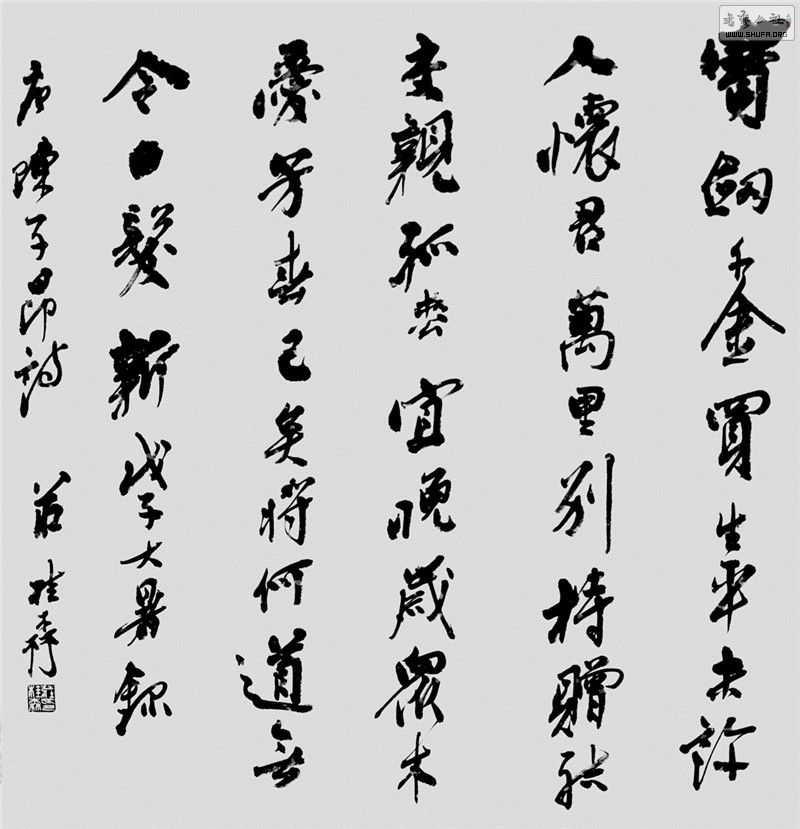 寶劍千金買生平未許
人懷君萬里別持贈結
交親孤松宜晚歲眾木
愛芳春已矣將何道無
令白髮新戊子大暑錄
唐陳子昂詩 莊桂森
書藝公社
WWW.SHUFA.ORG